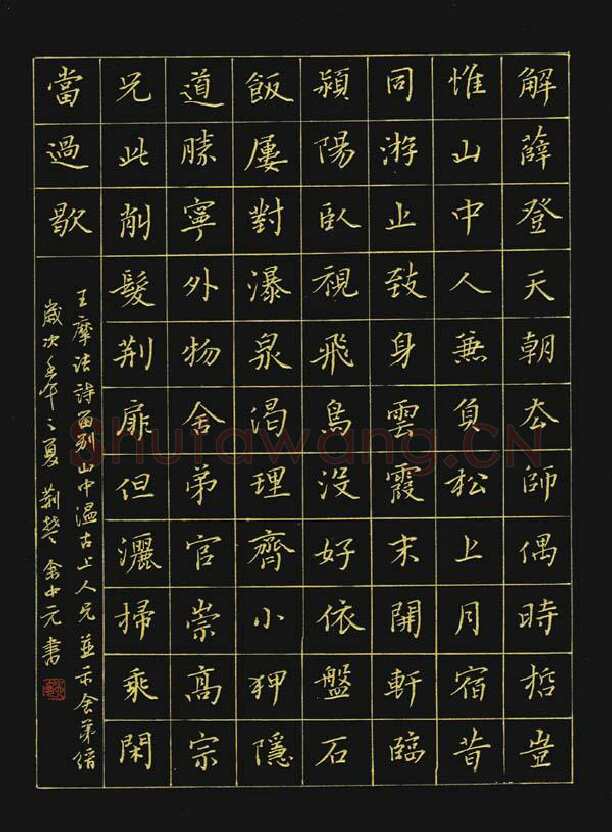 解薜登天朝去師偶時哲豈
惟山中人兼負松上月宿昔
同游止致身雲霞末開軒臨
潁陽臥視飛鳥沒好依盤石
飯屢對瀑泉渴理齊小狎隱
道勝寧外物舍弟官崇高宗
兄此削髮荊扉但灑掃乘閑
當過歇
王摩詰詩留別山中溫古上人兄並示舍弟縉
歲次壬午之夏 荊楚 中元書
Shufawang.CN